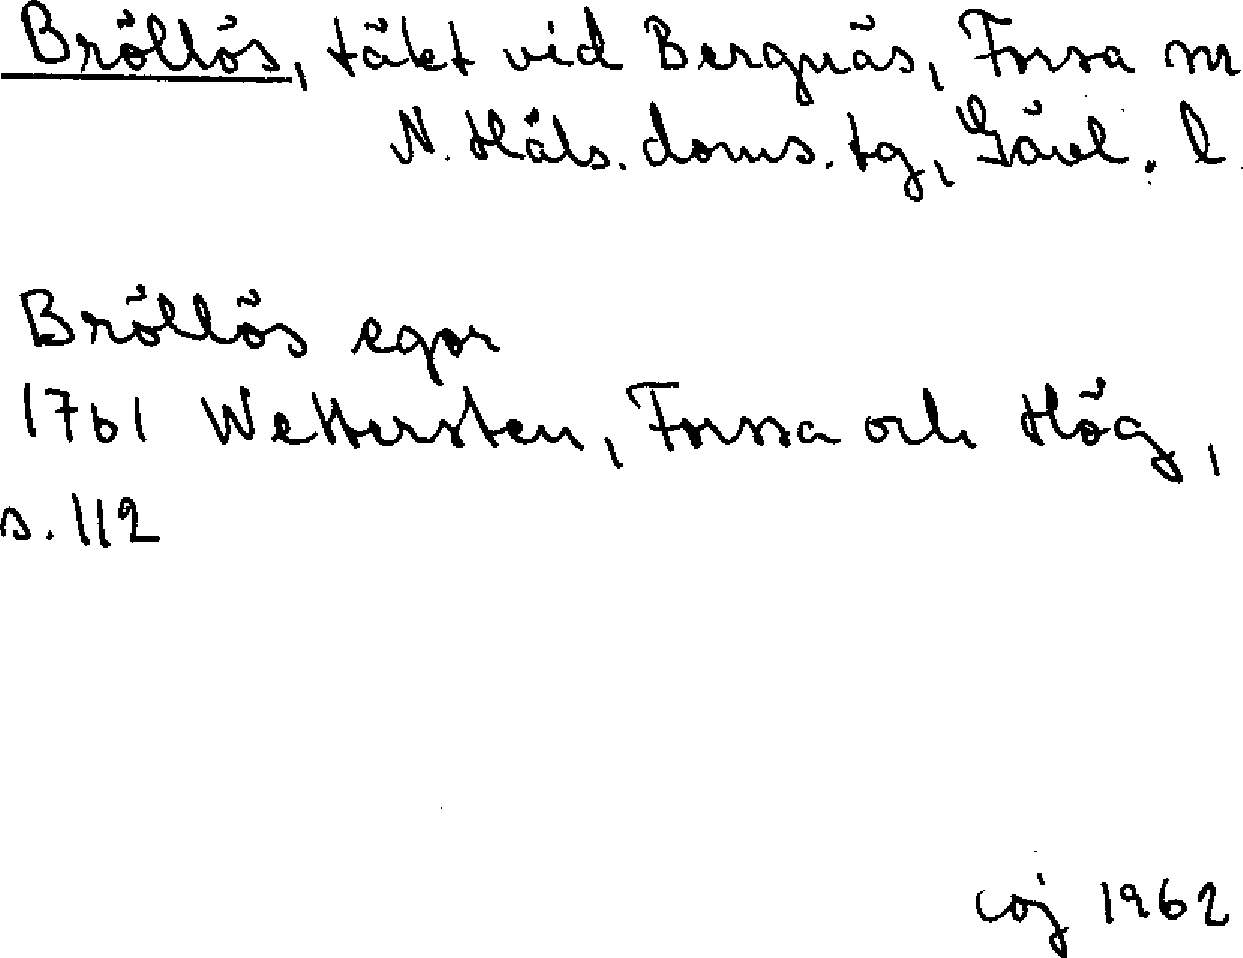 Bröllös, täkt vid Bergnäs, Forsa sn
N. Häls. doms. tg, Gävl. l.
Bröllös egor
1761 Wettersten, Forssa och Hög,
s. 112
coj 1962